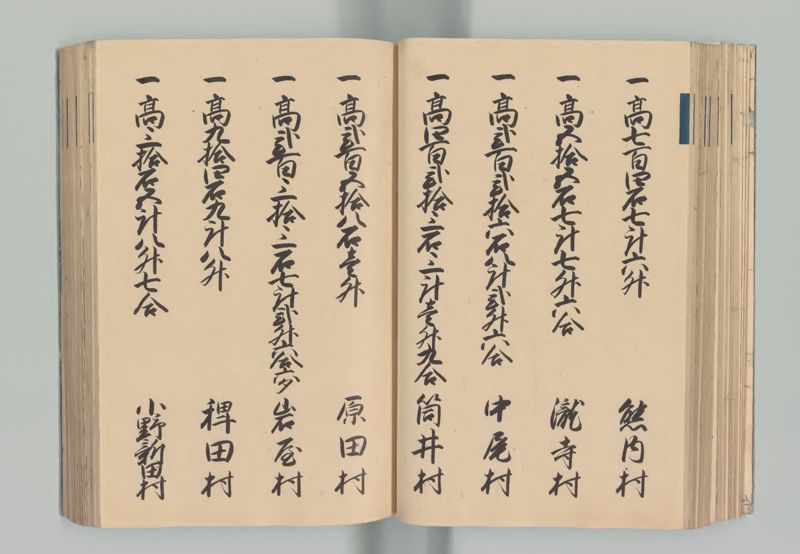 一高七百四石七斗六升　熊内村
一高五拾五石七斗七升六合　瀧寺村
一高弐百弐拾六石八斗弐升六合　中尾村
一高四百弐拾三石三斗壱升九合　筒井村
一高弐百五拾八石壱升　原田村
一高弐百三拾三石七斗弐升六合六勺　岩屋村
一高九拾四石九斗八升　稗田村
一高三拾石五斗八升七合　小野新田村